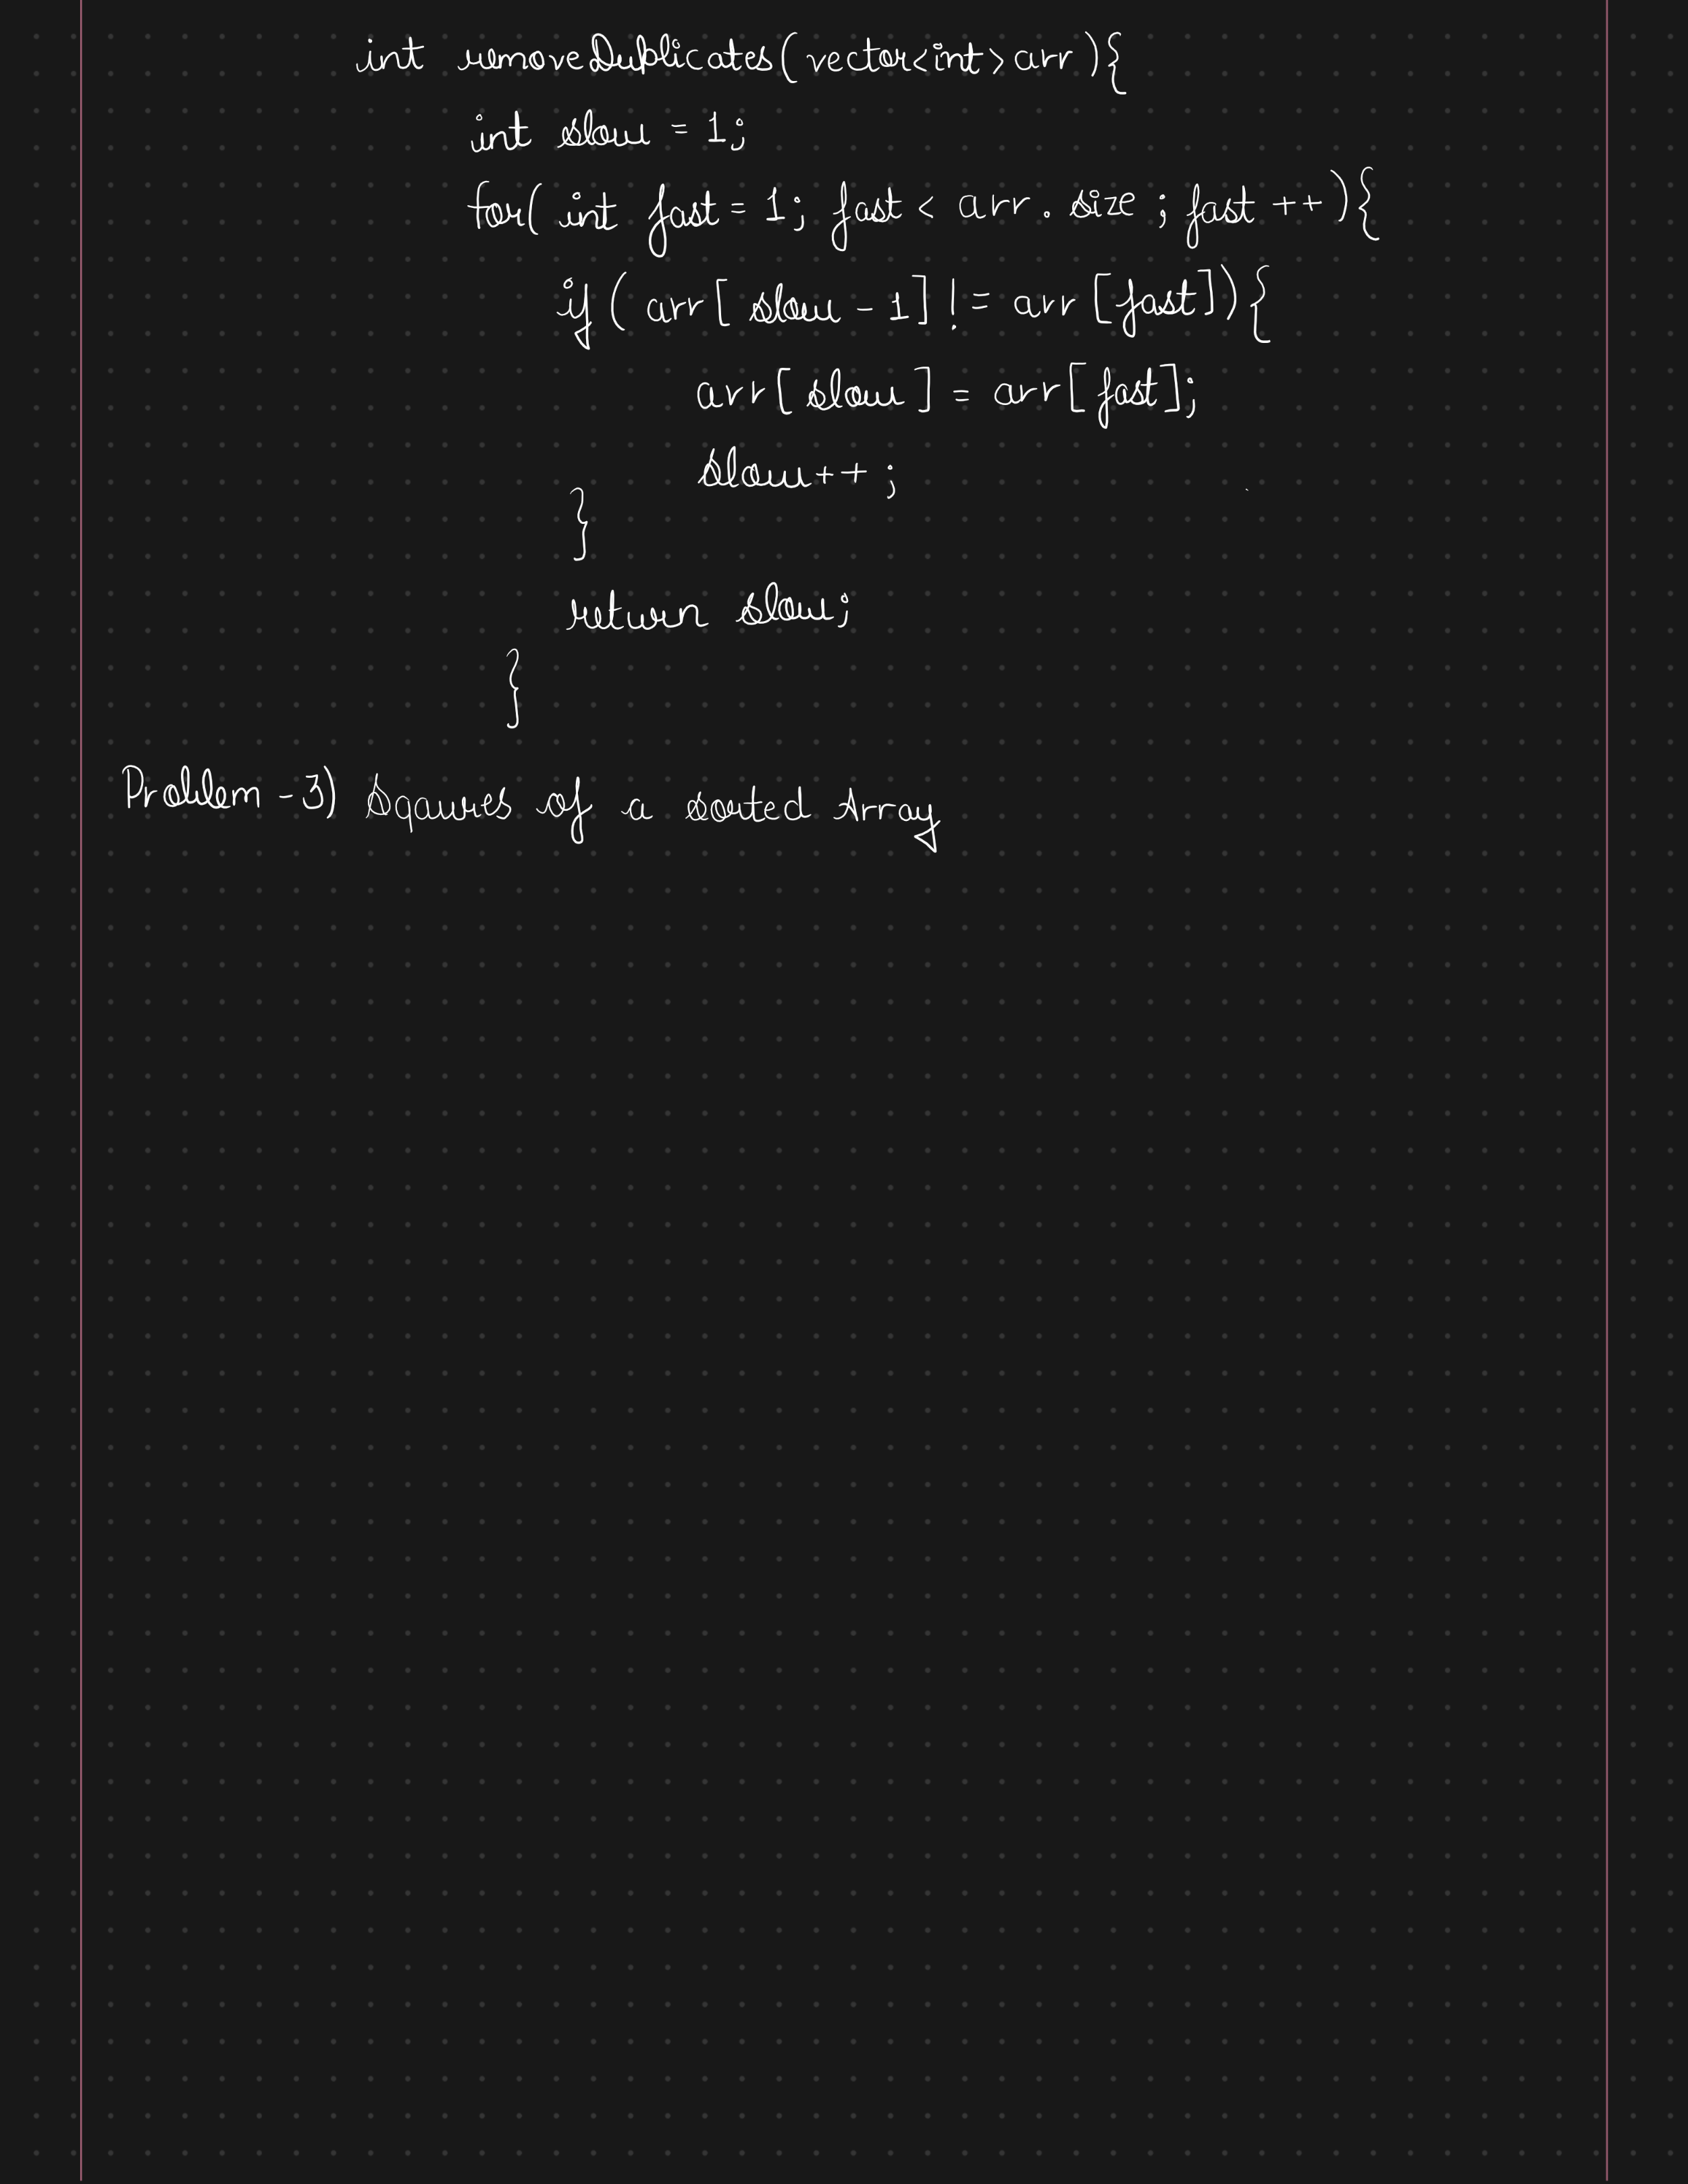 int removeDuplicates(vector<int>arr){
int slow = 1;
for( int fast = 1; fast < arr. size ; fast ++){
if ( arr[ slow - 1] != arr [fast]){
arr[ slow ] = arr[ fast];
slow++ ;
}
return slow;
}
Problem - 3) Sqaures of a sorted Array